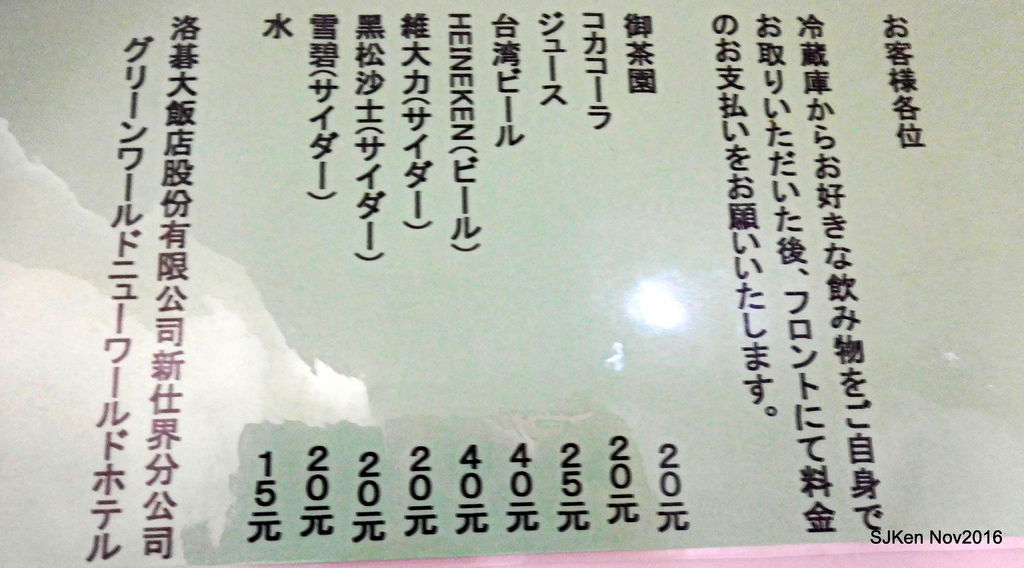 お客様各位
冷蔵庫からお好きな飲み物をご自身で
お取りいただいた後、フロントにて料金
のお支払いをお願いいたします。
御茶園 20元
コカコーラ 20元
ジュース 25元
台湾ビール 40元
HENEKEN(ビール) 40元
維大力(サイダー) 20元
黑松沙士(サイダー) 20元
雪碧(サイダー) 20元
水 15元
洛碁大飯店股份有限公司新仕界分公司
グリーンワールドニューワールドホテル
SJKen Nov2016